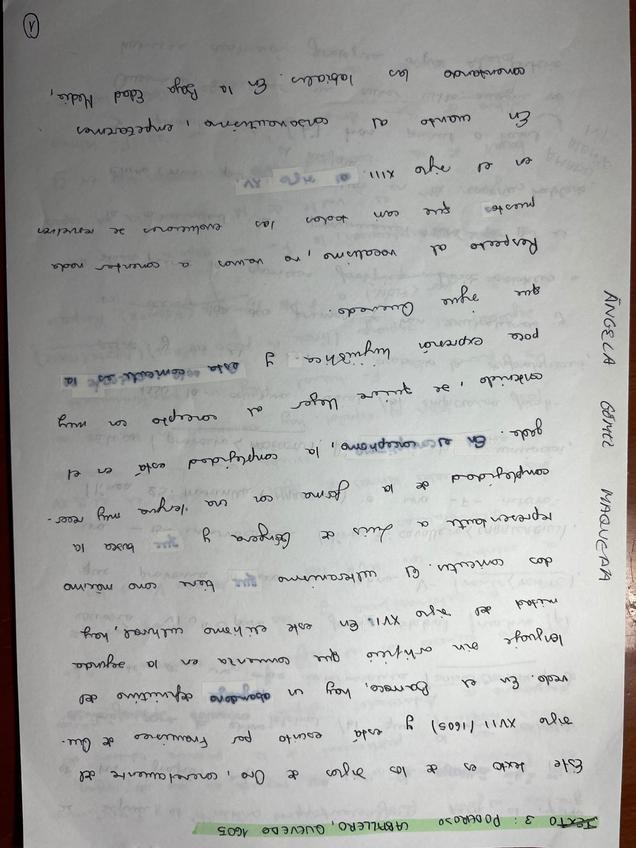 TEXTO 3: PODEROSO CABALLERO, QUEVEDO 1605
ÁNGELA GÓMEZ MAQUEDA
Este texto es de los siglos de Oro, concretamente del
siglo XVII (1605) y está escrito por Francisco de Que-
vedo. En el Barroco, hay un abandono definitivo del
lenguaje sin artificio que comienza en la segunda
mitad del siglo XVI. En este elitismo cultural, hay
dos corrientes. El culteranismo que tiene como máximo
representante a Luis de Góngora y que busca la
complejidad de la forma con una lengua muy recar-
gada. En el conceptismo, la complejidad está en el
contenido, se quiere llegar al concepto con muy
poca expresión lingüística y esta corriente es la
que sigue Quevedo.
Respecto al vocalismo, no vamos a comentar nada
puestos que con todas las evoluciones se resuelven
en el siglo XIII. al siglo XV.
En cuanto al consonantismo, empezaremos
comentando las labiales. En la Baja Edad Media,
1